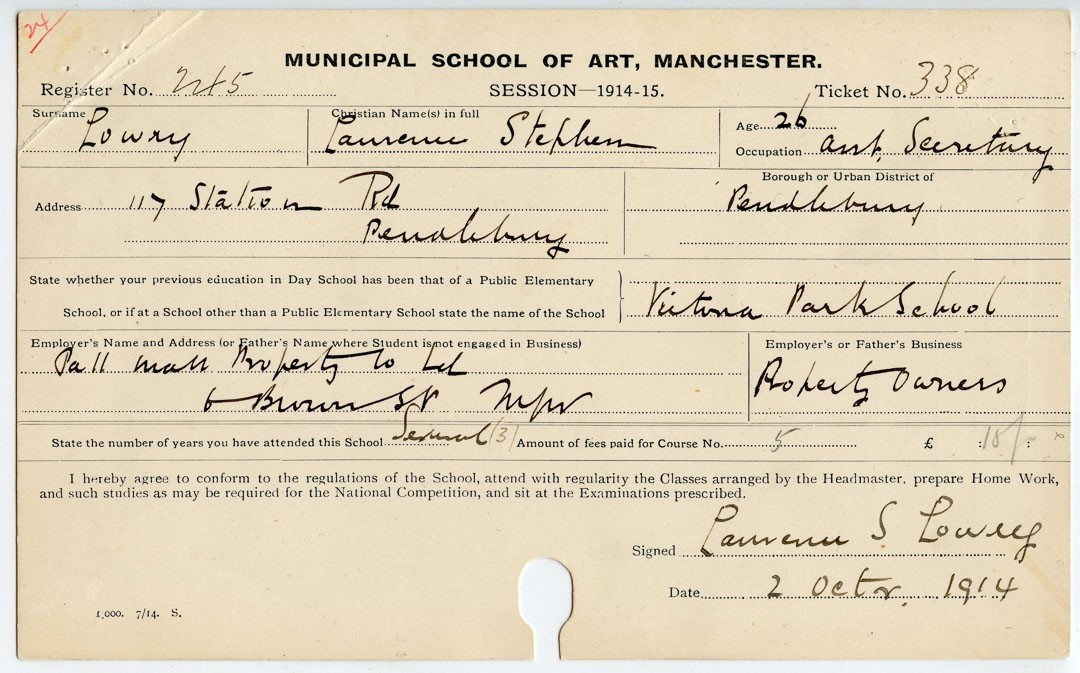 24
MUNICIPAL SCHOOL OF ART, MANCHESTER.
Register No. 245 SESSION—1914-15. Ticket No. 338
Surname Lowry Christian Name(s) in full Laurence Stephen Age 26
Occupation asst. Secretary
Address 117 Station Rd Borough or Urban District of Pendlebury
Pendlebury
State whether your previous education in Day School has been that of a Public Elementary
School, or if at a School other than a Public Elementary School state the name of the School Victoria Park School
Employer's Name and Address (or Father's Name where Student is not engaged in Business) Employer's or Father's Business
Pall mall Property Co Ltd Property Owners
6 Brown St M/cr
State the number of years you have attended this School Several (3) Amount of fees paid for Course No. 5 £ : 15/- :
I hereby agree to conform to the regulations of the School, attend with regularity the Classes arranged by the Headmaster, prepare Home Work,
and such studies as may be required for the National Competition, and sit at the Examinations prescribed.
Signed Laurence S Lowry
Date 2 Octr. 1914
1,000. 7/14. S.